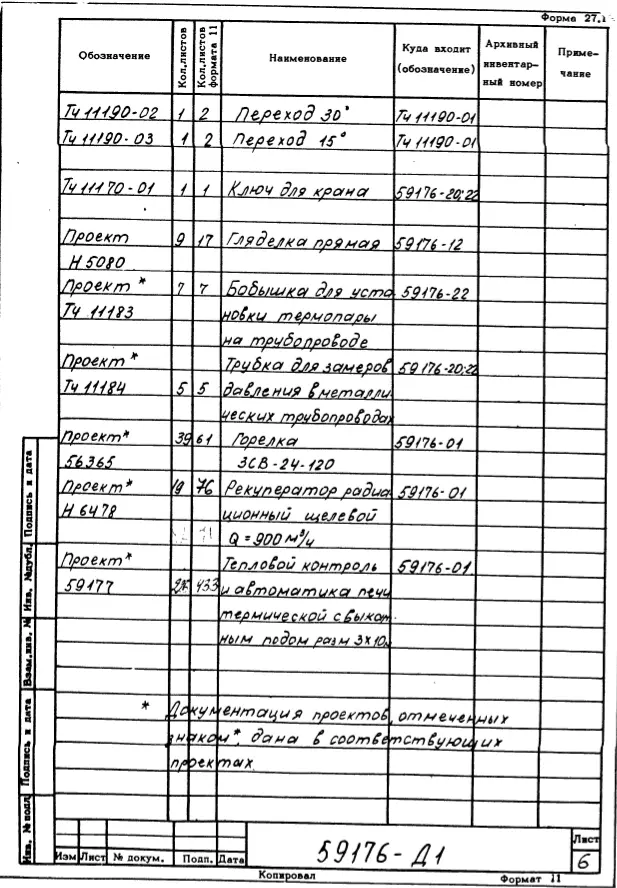 Форма 27.1
Обозначение | Кол.листов | Кол.листов формата 11 | Наименование | Куда входит (обозначение) | Архивный инвентар- ный номер | Приме- чание
Тч 11190-02 1 2 Переход 30° Тч 11190-01
Тч 11190-03 1 2 Переход 15° Тч 11190-01
Тч 11170-01 1 1 Ключ для крана 59176-20;22
Проект 9 17 Гляделка прямая 59176-12
Н 5080
Проект * 7 7 Бобышка для уста 59176-22
Тч 11183 новки термопары
на трубопроводе
Проект * Трубка для замеров 59176-20;22
Тч 11184 5 5 давления в металли
ческих трубопроводах
Проект* 39 61 Горелка 59176-01
56365 ЗСВ-24-120
Проект* 19 76 Рекуператор радиа 59176-01
Н 6478 ционный щелевой
Q=900 м³/ч
Проект* Тепловой контроль 59176-01
59177 433 и автоматика печи
термической с выкат-
ным подом разм 3х10м
* Документация проектов, отмеченных
знаком*, дана в соответствующих
проектах.
Подпись и дата
Инв. №дубл.
Взам.инв. №
Подпись и дата
Инв. №подл
Изм Лист № докум. Подп. Дата
59176-Д1
Лист
6
Копировал Формат 11